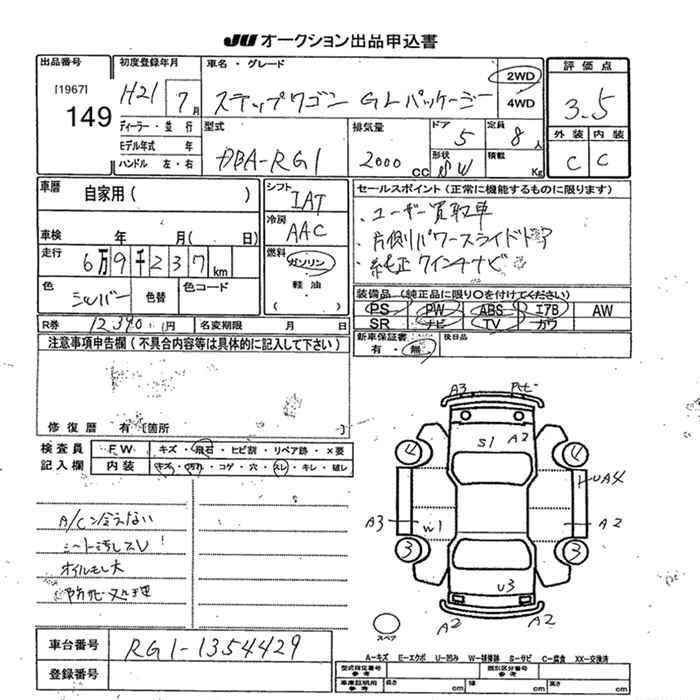 JU オークション出品申込書
出品番号
[1967]
149
初度登録年月
H21 7月
車名・グレード
ステップワゴン GLパッケージ
2WD
4WD
評価点
3.5
外装 内装
C C
ディーラー・並行
モデル年式 年
ハンドル 左・右
型式
DBA-RG1
排気量
2000 CC
ドア
5
定員
8人
形状
SW
積載
Kg
車歴
自家用( )
シフト
IAT
冷房
AAC
燃料
ガソリン
軽油
( )
車検 年 月( 日)
走行
6万9千237km
色
シルバー
色替
色コード
R券 12,340円
名変期限 月 日
セールスポイント(正常に機能するものに限ります)
・ユーザー買取車
・片側パワースライドドア
・純正ワインチナビ
装備品(純正品に限り○を付けてください)
PS PW ABS エアB AW
SR ナビ TV カワ
新車保証書
有・無
後日品
注意事項申告欄(不具合内容等は具体的に記入して下さい)
修復歴 有[箇所 ]
検査員
記入欄
FW キズ・飛石・ヒビ割・リペア跡・X要
内装 キズ・汚れ・コゲ・穴・スレ・キレ・破レ
A/C冷えない
シート汚しスレ!
オイルモレ大
防汚処理
A3
S1
A2
4
4
UA4
A3
W1
A2
3
3
U3
A2
A2
スペア
車台番号
RG1-1354429
登録番号
A-キズ E-エクボ U-凹み W-補修跡 S-サビ C-腐食 XX-交換済
型式指定番号
参考
類別区分番号
参考
車庫証明用
参考
長さ cm 幅 cm 高さ cm